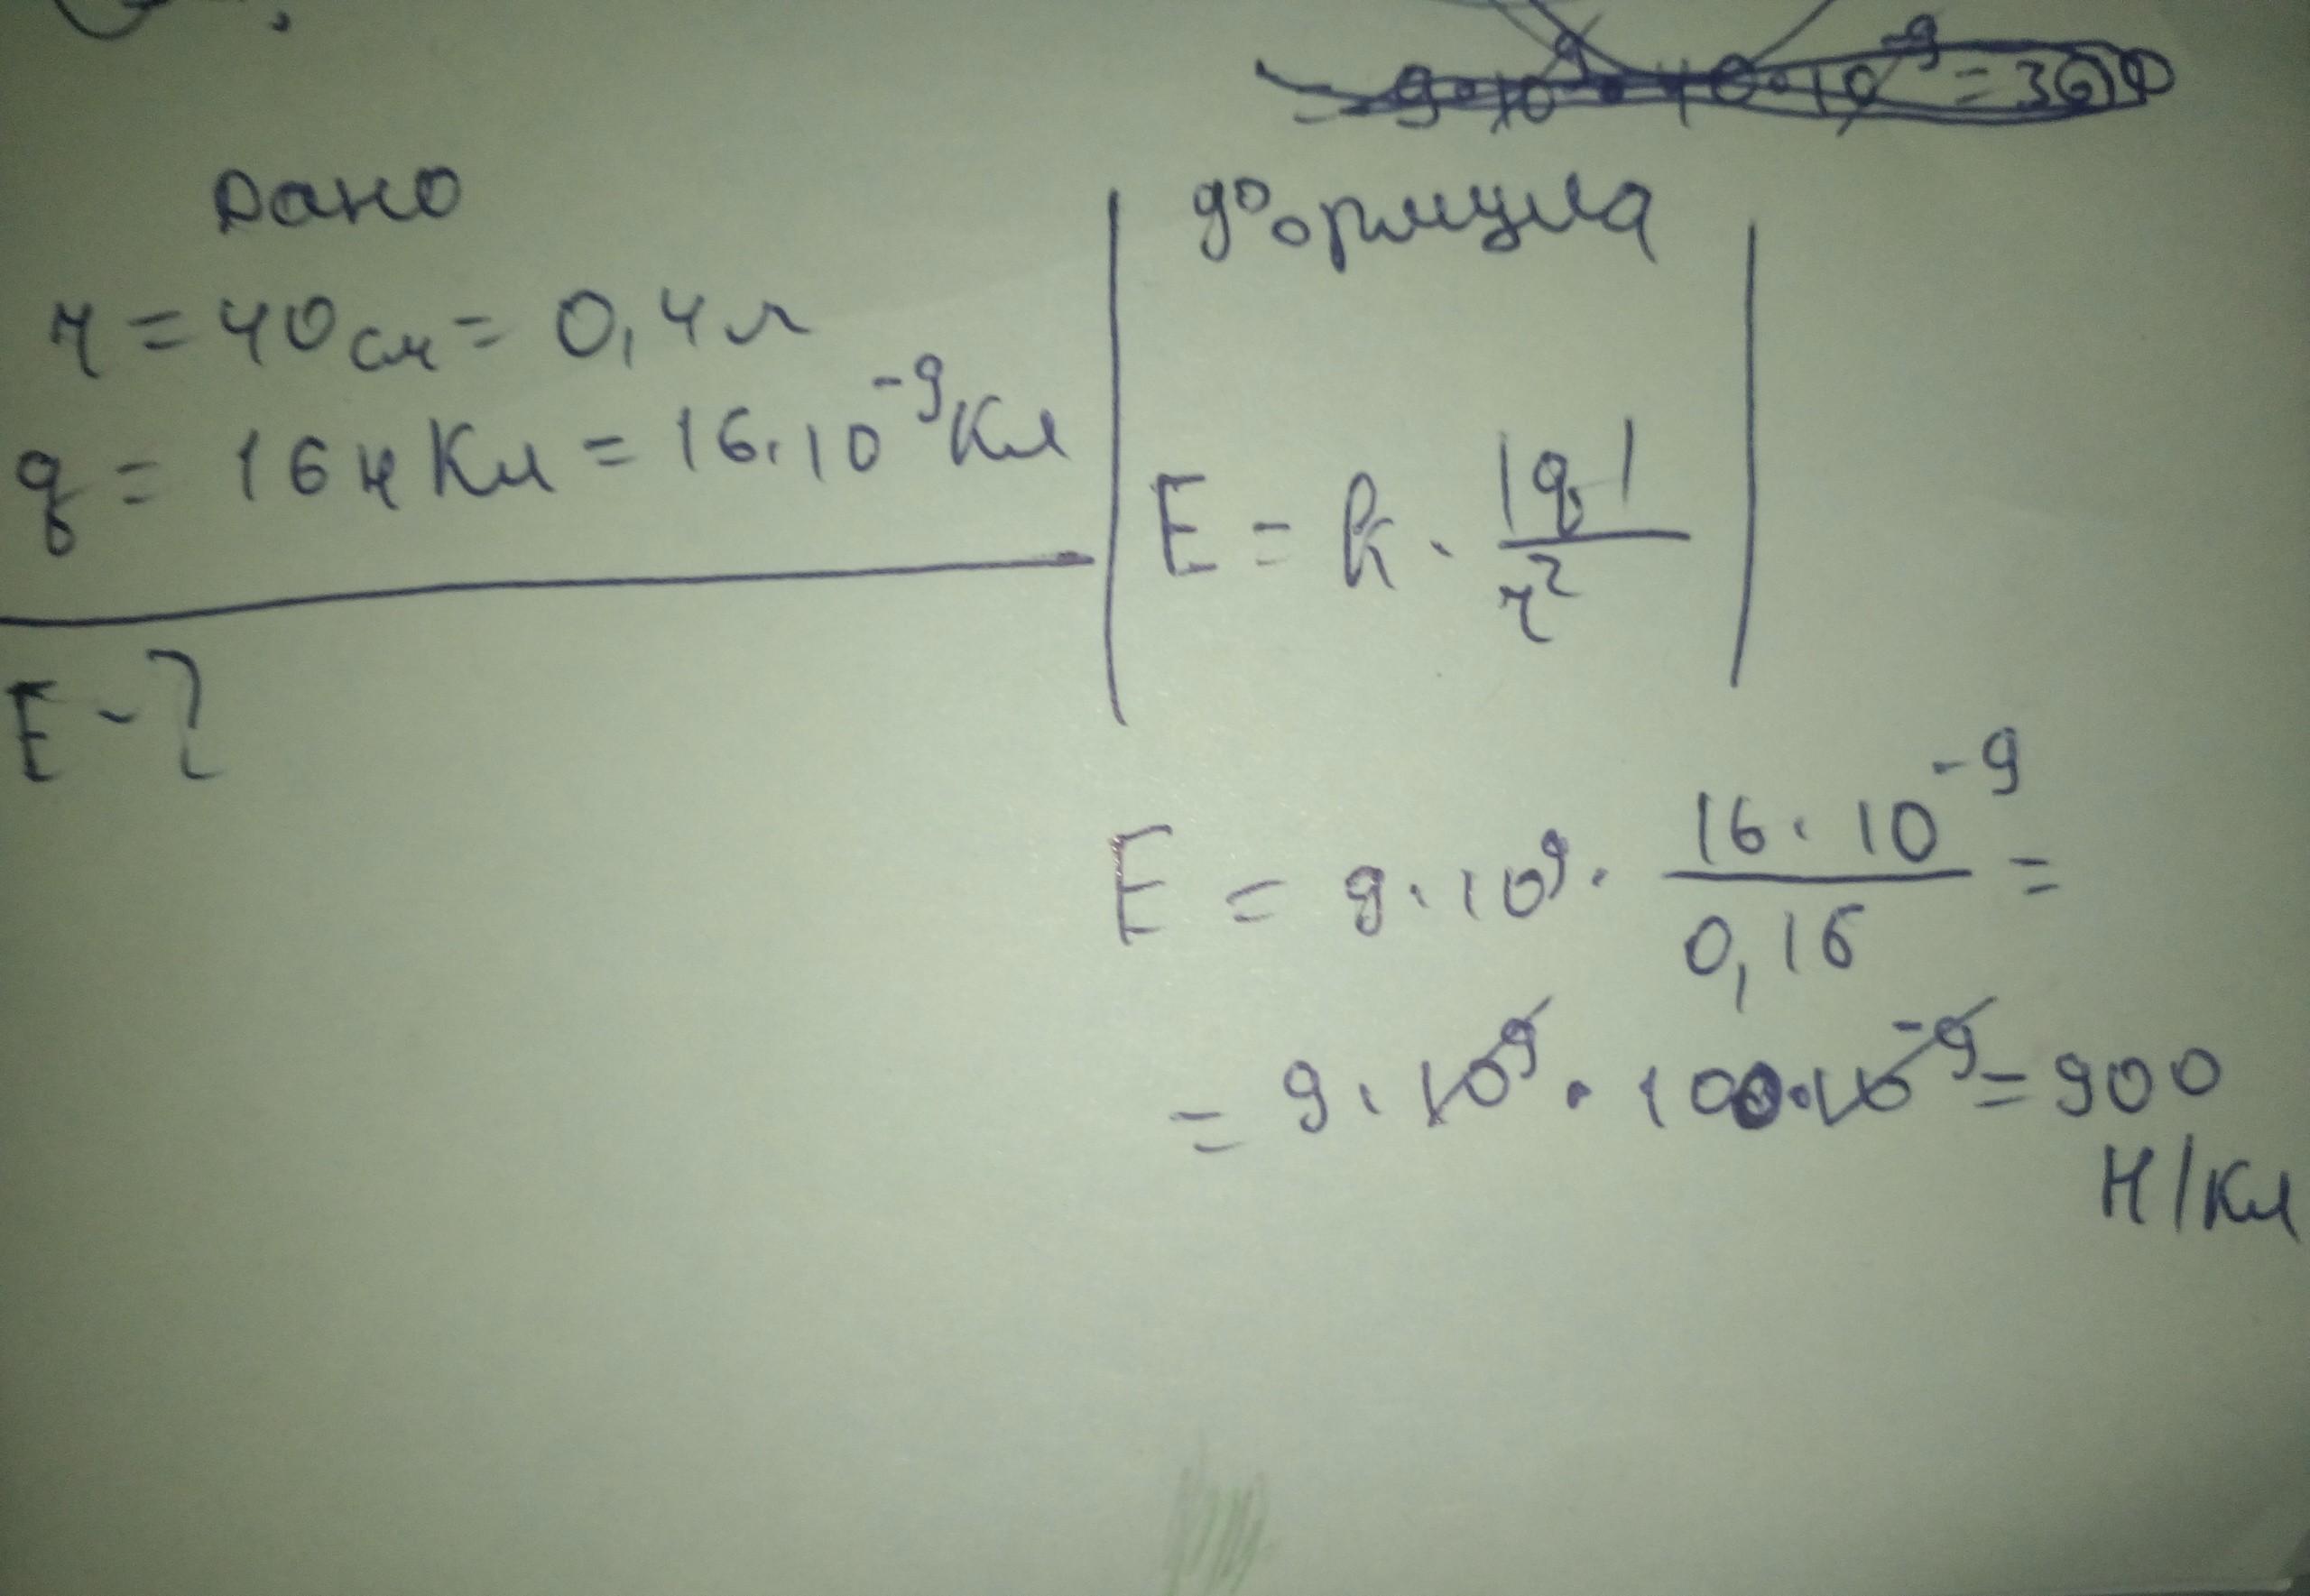 = 9·10⁹·40·10⁻⁹ = 360
Дано
r = 40 см = 0,4 м
q = 16 нКл = 16·10⁻⁹ Кл
E - ?
формула
E = k · |q| / r²
E = 9·10⁹ · 16·10⁻⁹ / 0,16 =
= 9·10⁹ · 100·10⁻⁹ = 900
Н/Кл